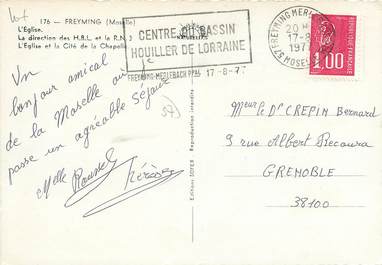 176 - FREYMING (Moselle)
L'Eglise.
La direction des H.B.L. et la R.N. 3
L'Eglise et la Cité de la Chapelle
CENTRE DU BASSIN
HOUILLER DE LORRAINE
FREYMING-MERLEBACH PPAL 17-8-7
57 FREYMING MERLEBACH
20 H
17-8
197
MOSELLE
1,00
Un
bonjour amical
de la Moselle où je
passe un agréable séjour
Melle Roussel
Thérèse
57
Editions SOFER
Reproduction interdite
Mr le Dr CREPIN Bernard
9 rue Albert Recoura
GRENOBLE
38100